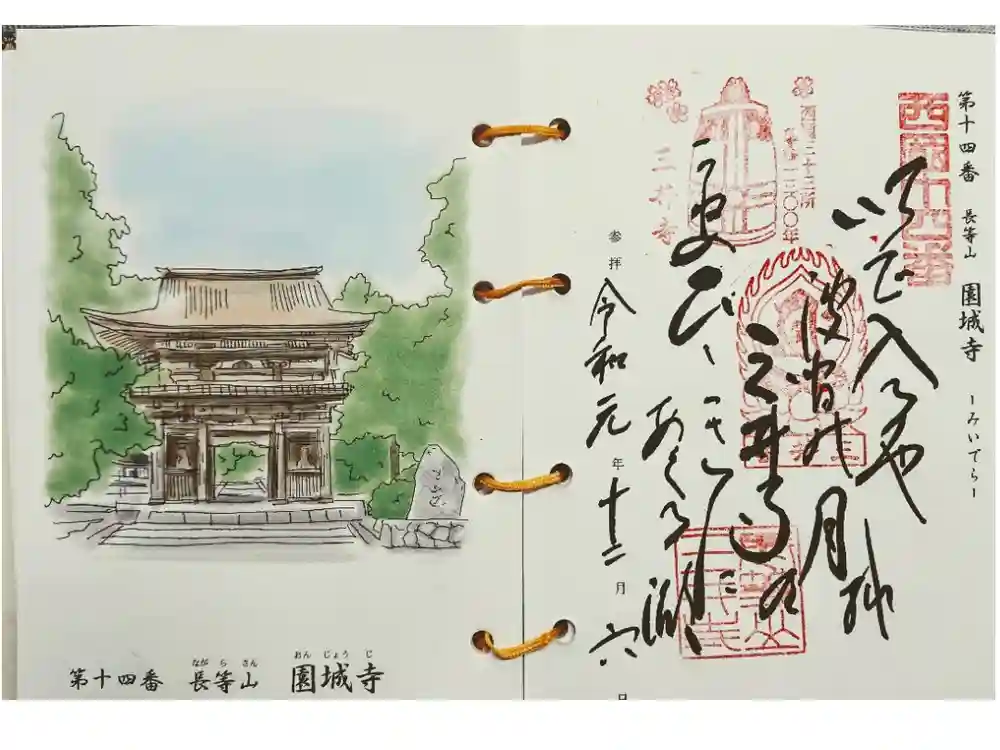 第十四番 長等山 園城寺 ーみいでらー
西国十四番
いで入るや
波間の月を
三井寺の
ひびきに
あくる湖
西国三十三所
草創一三〇〇年
三井寺
参拝 令和元年十二月六日
第十四番 長等山 園城寺
ながらさん おんじょうじ